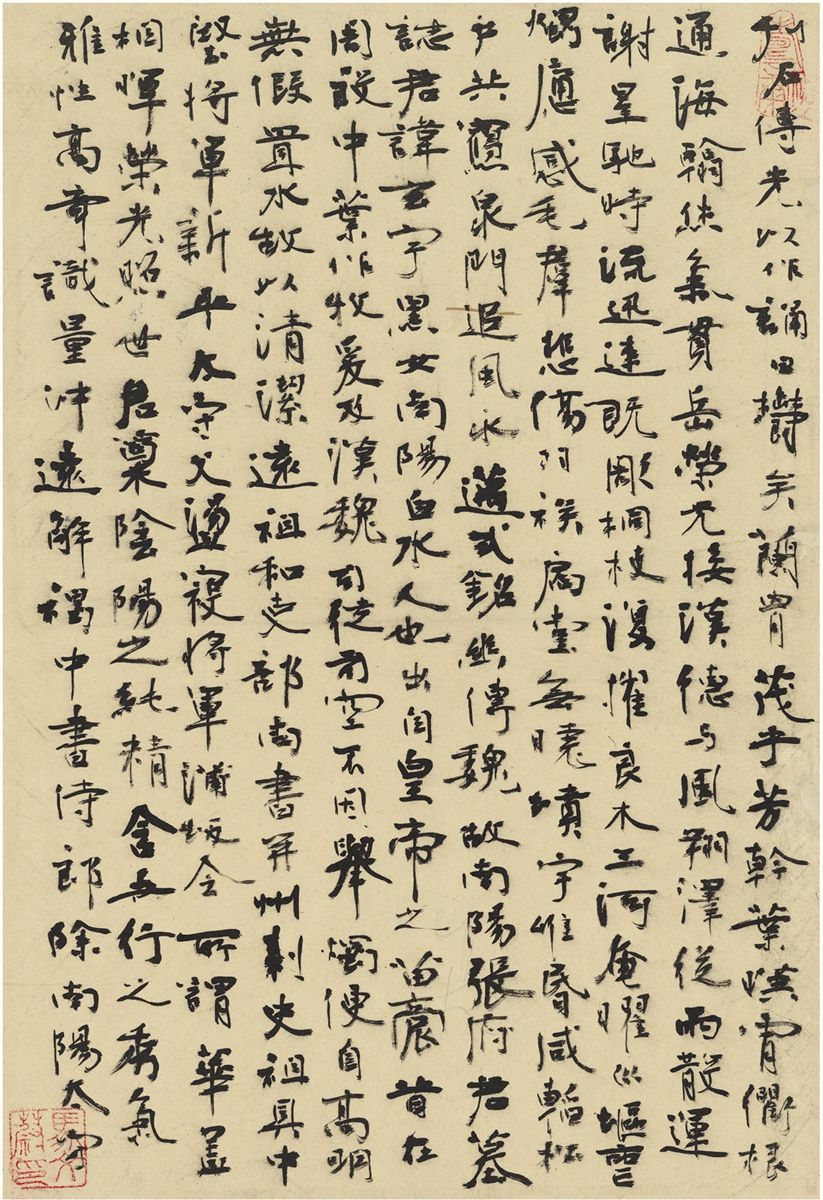 刊石傳光以作誦曰鬱矣蘭胄茂乎芳幹葉暎霄衢根
通海翰休氣貫岳榮光接漢德与風翔澤從雨散運
謝星馳時流迅速既彫桐枝復摧良木三河奄曜巛塸喪
燭應感毛羣悲傷羽族扃堂無曉墳宇惟昬咸韜松
戶共寢泉門追風永邁式銘幽傳魏故南陽張府君墓
誌君諱玄字黑女南陽白水人也出自皇帝之苗裔昔在
周設中葉作牧爰及漢魏司徒司空不因舉燭便自高明
無假置水故以清潔遠祖和吏部尚書并州刺史祖具中
堅將軍新平太守父盪寇將軍蒲坂令所謂華蓋
相暉榮光照世君稟陰陽之純精含五行之秀氣
雅性高奇識量沖遠解褐中書侍郎除南陽太守